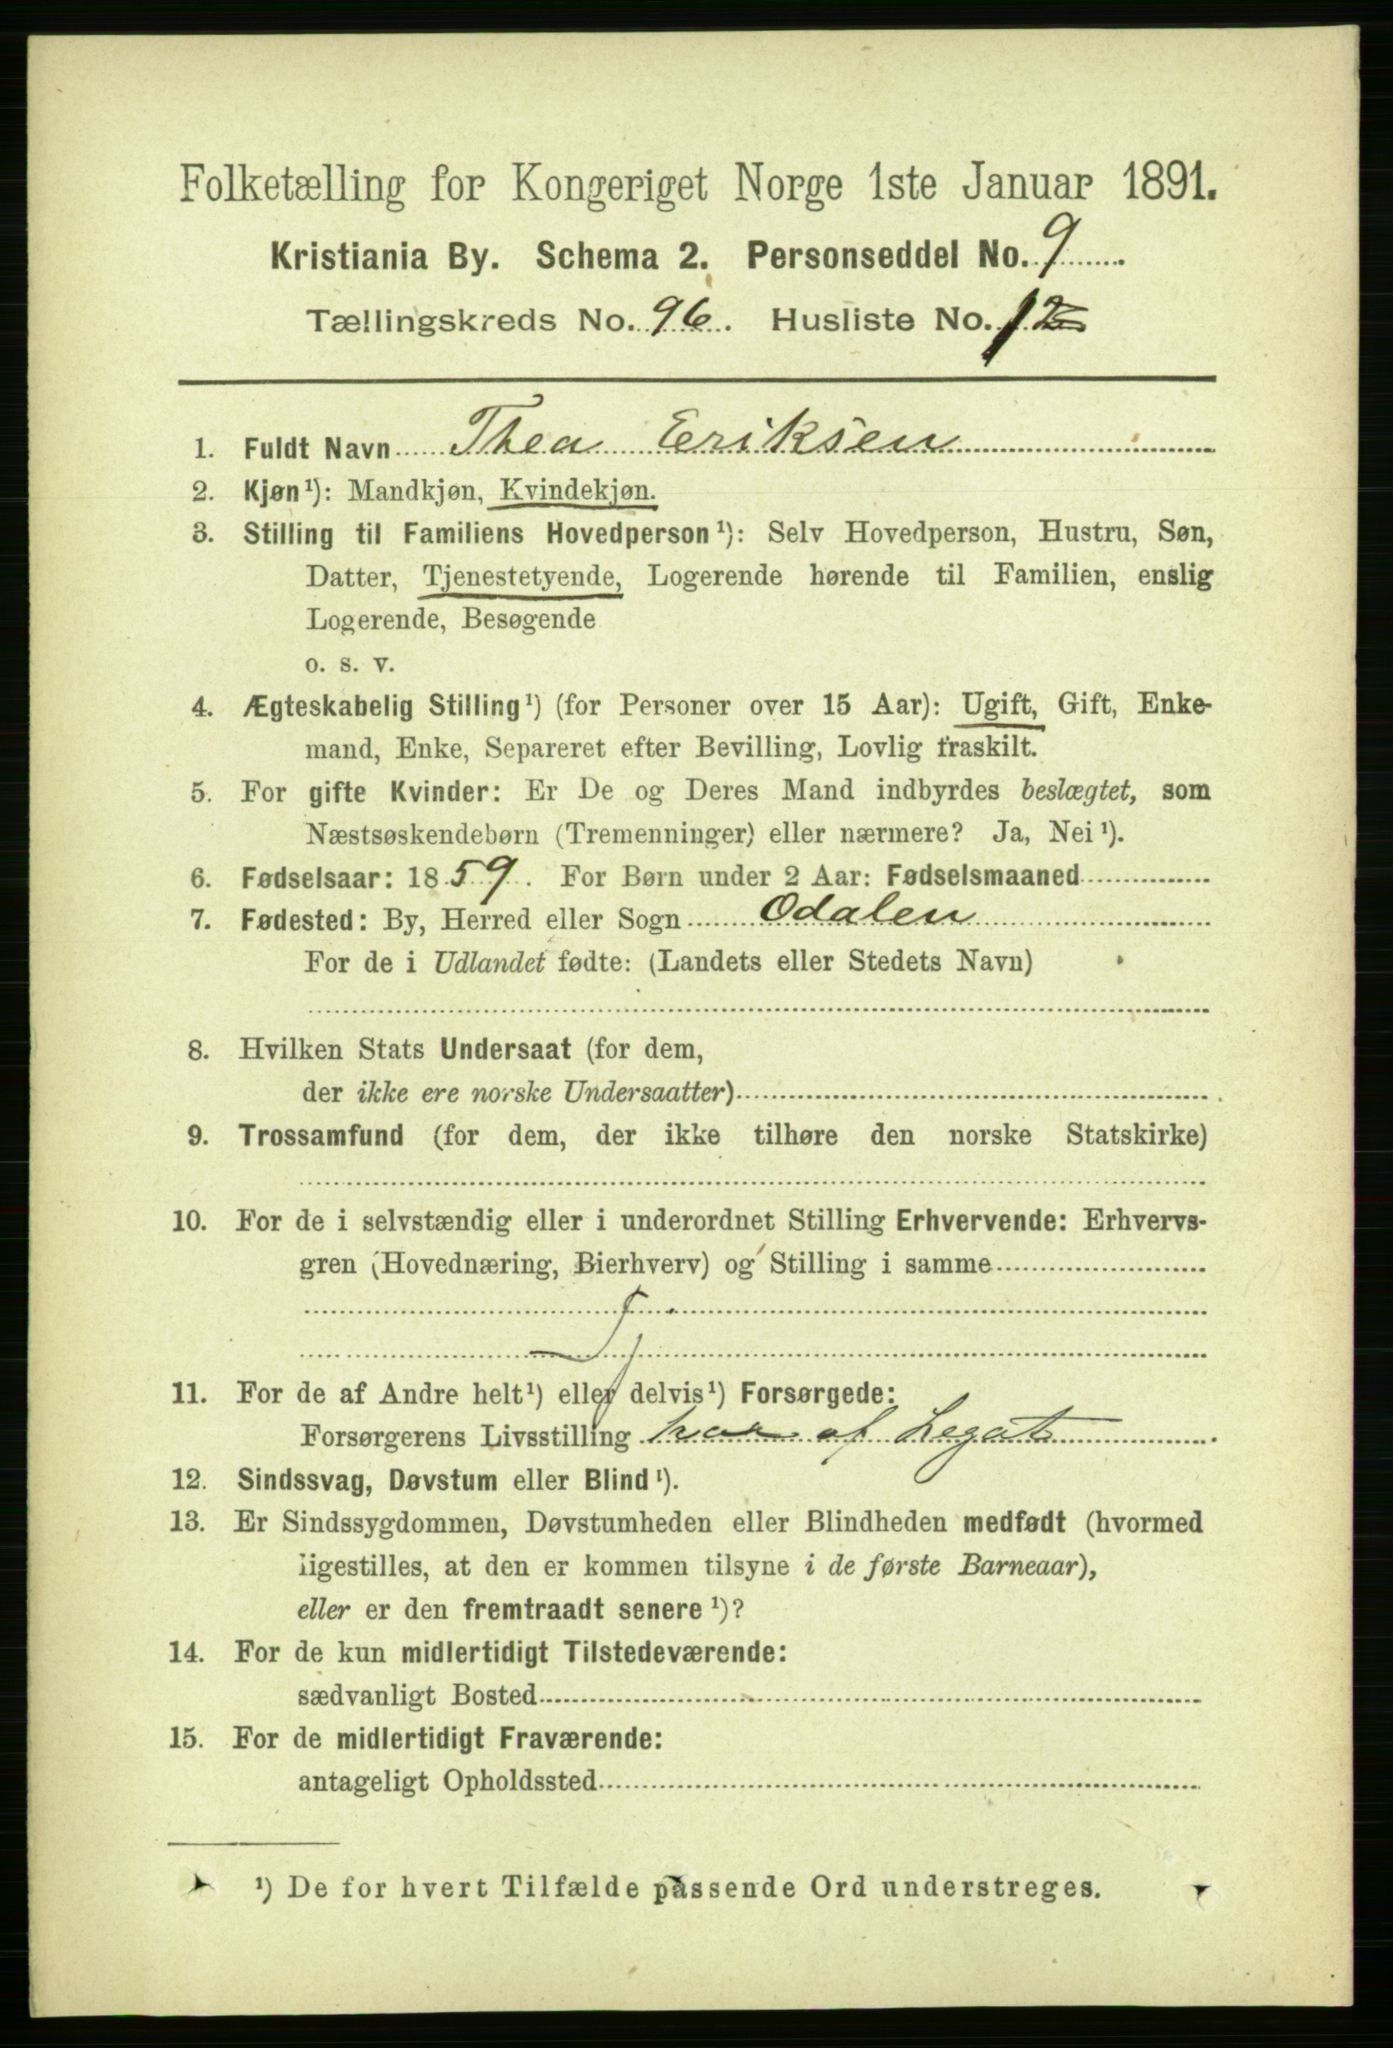 Folketælling for Kongeriget Norge 1ste Januar 1891.
Kristiania By. Schema 2. Personseddel No. 9
Tællingskreds No. 96. Husliste No. 12
1. Fuldt Navn Thea Eriksen
2. Kjøn¹): Mandkjøn, Kvindekjøn.
3. Stilling til Familiens Hovedperson¹): Selv Hovedperson, Hustru, Søn,
Datter, Tjenestetyende, Logerende hørende til Familien, enslig
Logerende, Besøgende
o. s. v.
4. Ægteskabelig Stilling¹) (for Personer over 15 Aar): Ugift, Gift, Enke-
mand, Enke, Separeret efter Bevilling, Lovlig fraskilt.
5. For gifte Kvinder: Er De og Deres Mand indbyrdes beslægtet, som
Næstsøskendebørn (Tremenninger) eller nærmere? Ja, Nei¹).
6. Fødselsaar: 1859. For Børn under 2 Aar: Fødselsmaaned
7. Fødested: By, Herred eller Sogn Odalen
For de i Udlandet fødte: (Landets eller Stedets Navn)
8. Hvilken Stats Undersaat (for dem,
der ikke ere norske Undersaatter)
9. Trossamfund (for dem, der ikke tilhøre den norske Statskirke)
10. For de i selvstændig eller i underordnet Stilling Erhvervende: Erhvervs-
gren (Hovednæring, Bierhverv) og Stilling i samme
11. For de af Andre helt¹) eller delvis¹) Forsørgede:
Forsørgerens Livsstilling har af Legat
12. Sindssvag, Døvstum eller Blind¹).
13. Er Sindssygdommen, Døvstumheden eller Blindheden medfødt (hvormed
ligestilles, at den er kommen tilsyne i de første Barneaar),
eller er den fremtraadt senere¹)?
14. For de kun midlertidigt Tilstedeværende:
sædvanligt Bosted
15. For de midlertidigt Fraværende:
antageligt Opholdssted
¹) De for hvert Tilfælde passende Ord understreges.